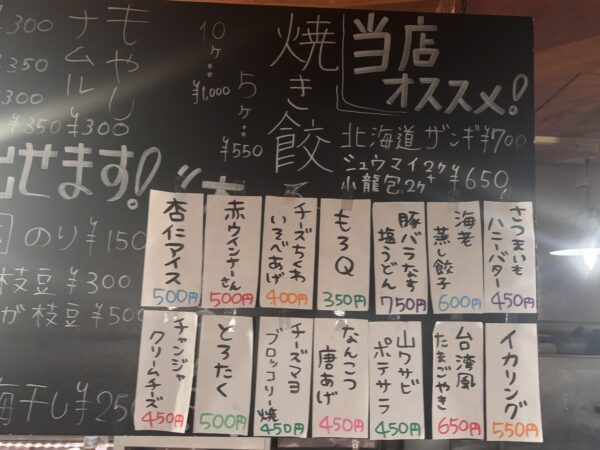 当店
オススメ!
北海道ザンギ¥700
シュウマイ2ケ
小龍包2ケ
¥650
焼き餃
5ケ…
¥550
10ヶ…
¥1,000
もやし
ナムル
¥300
¥300
¥350
¥350
出せます!
のり¥150
枝豆¥300
が枝豆¥500
梅干し¥250
さつまいも
ハニーバター
450円
海老
蒸し餃子
600円
豚バラなす
塩うどん
750円
もろQ
350円
チーズちくわ
いそべあげ
400円
赤ウインナーさん
500円
杏仁アイス
500円
イカリング
550円
台湾風
たまごやき
650円
山ワサビ
ポテサラ
450円
なんこつ
唐あげ
450円
チーズマヨ
ブロッコリー焼
450円
とろたく
500円
チャンジャ
クリームチーズ
450円